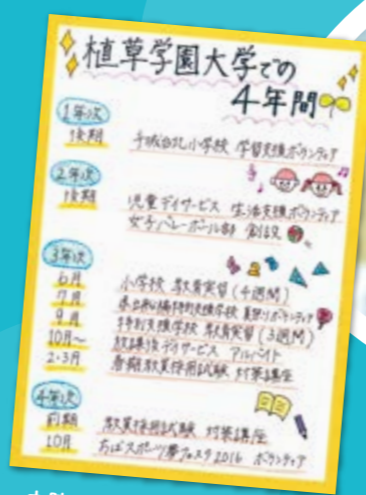 植草学園大学での
4年間
1年次
後期 千城台北小学校 学習支援ボランティア
2年次
後期 児童デイサービス 生活支援ボランティア
女子バレーボール部 創設
3年次
6月 小学校 教育実習(4週間)
7月 特別支援学校 夏祭りボランティア
9月 特別支援学校 教育実習(3週間)
10月~ 放課後デイサービス アルバイト
2・3月 春期教員採用試験 対策講座
4年次
前期 教員採用試験 対策講座
10月 ちばスポーツ夢フェスタ2016 ボランティア